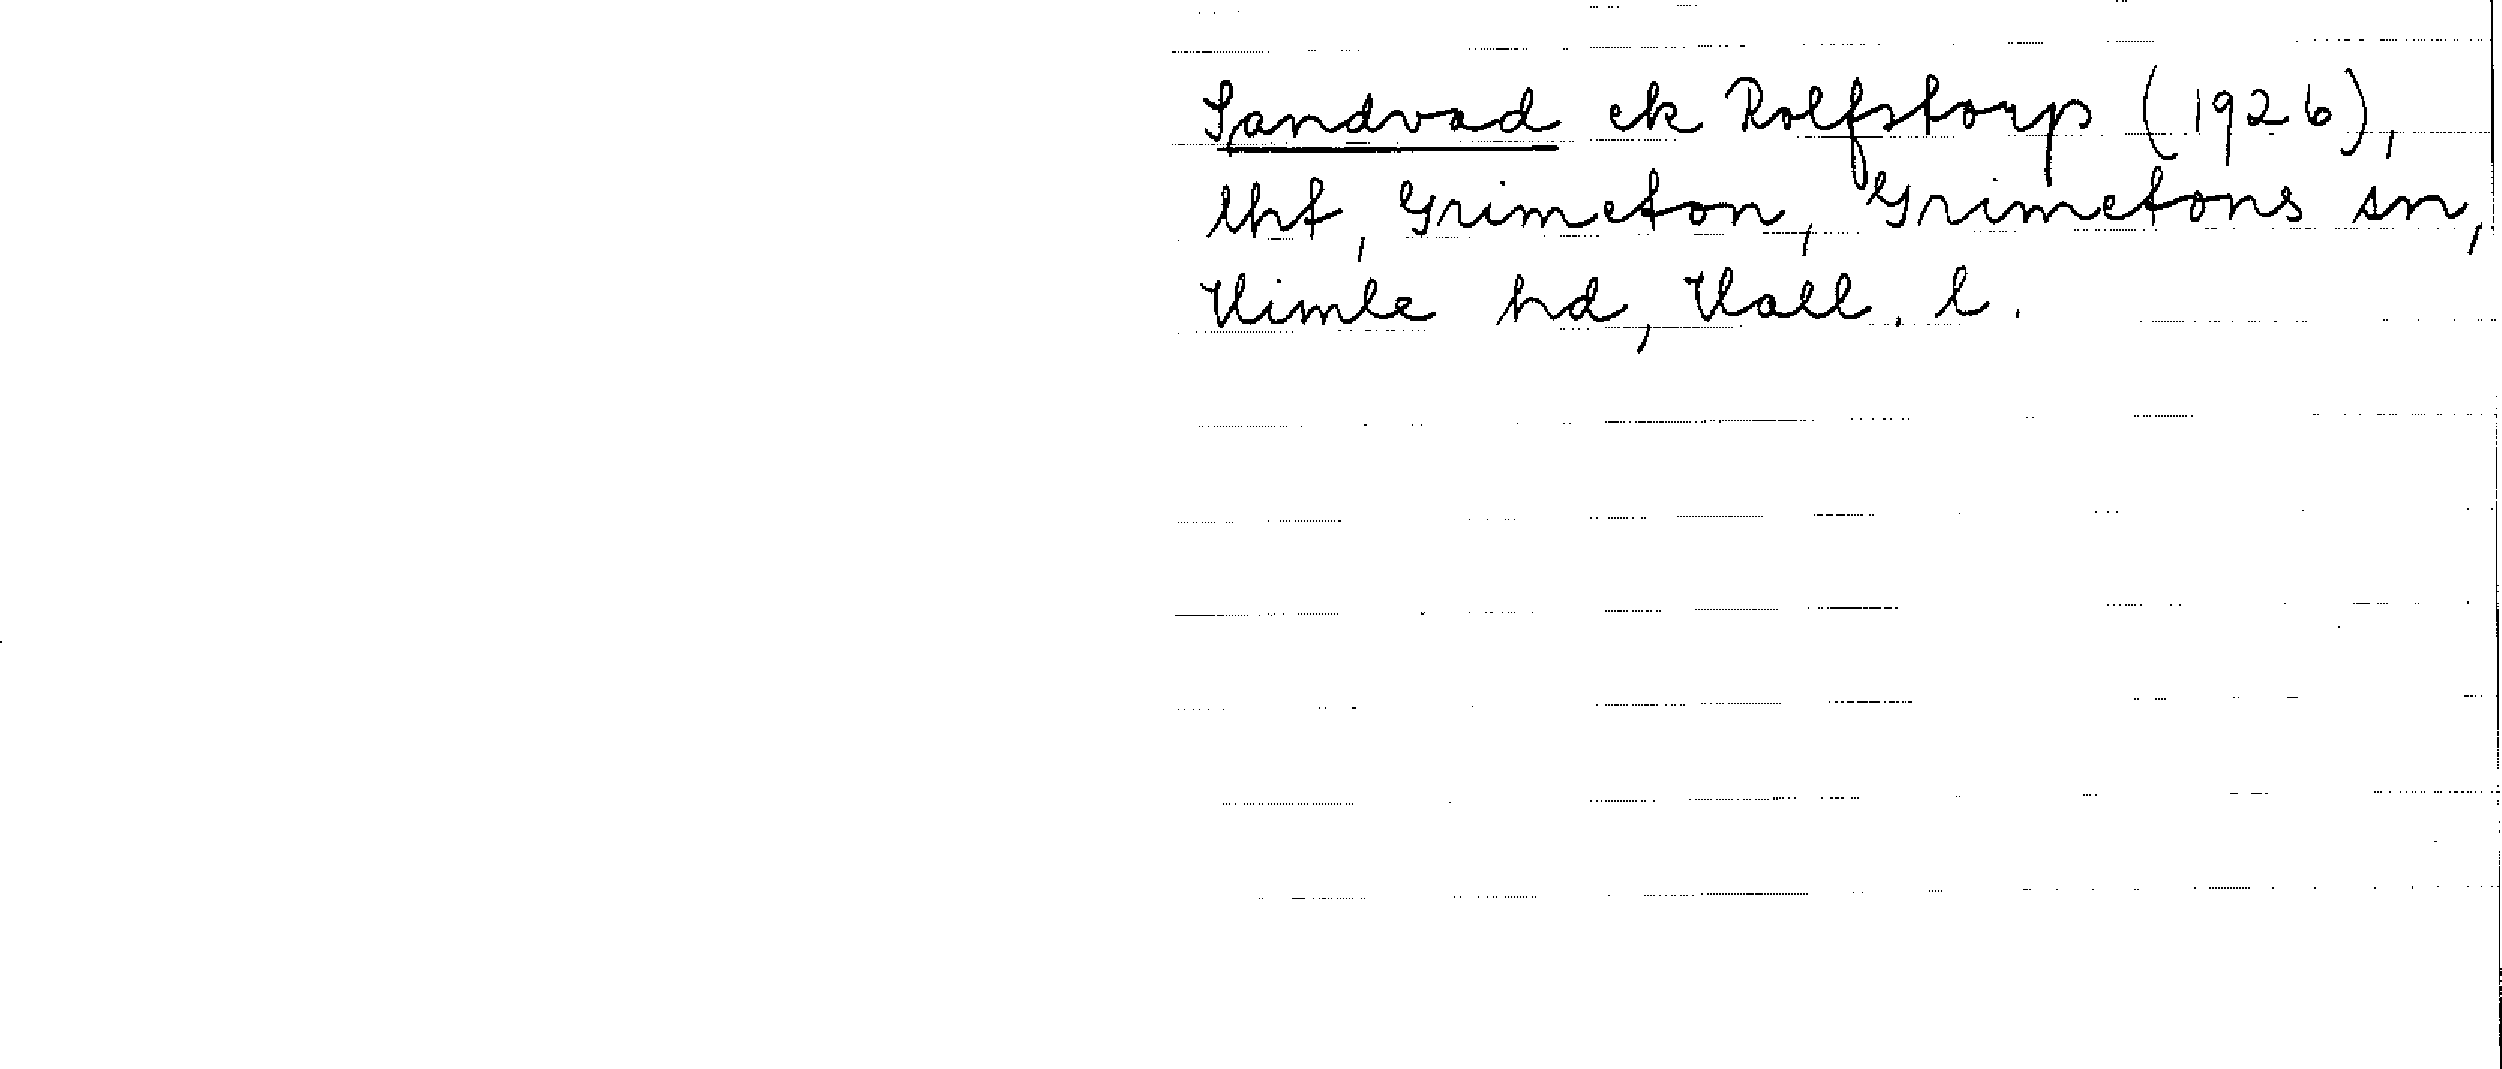 Sandvad ek Rolfstorp (1926),
lht, Grimeton, Grimetons sn,
Himle hd, Hall. l.